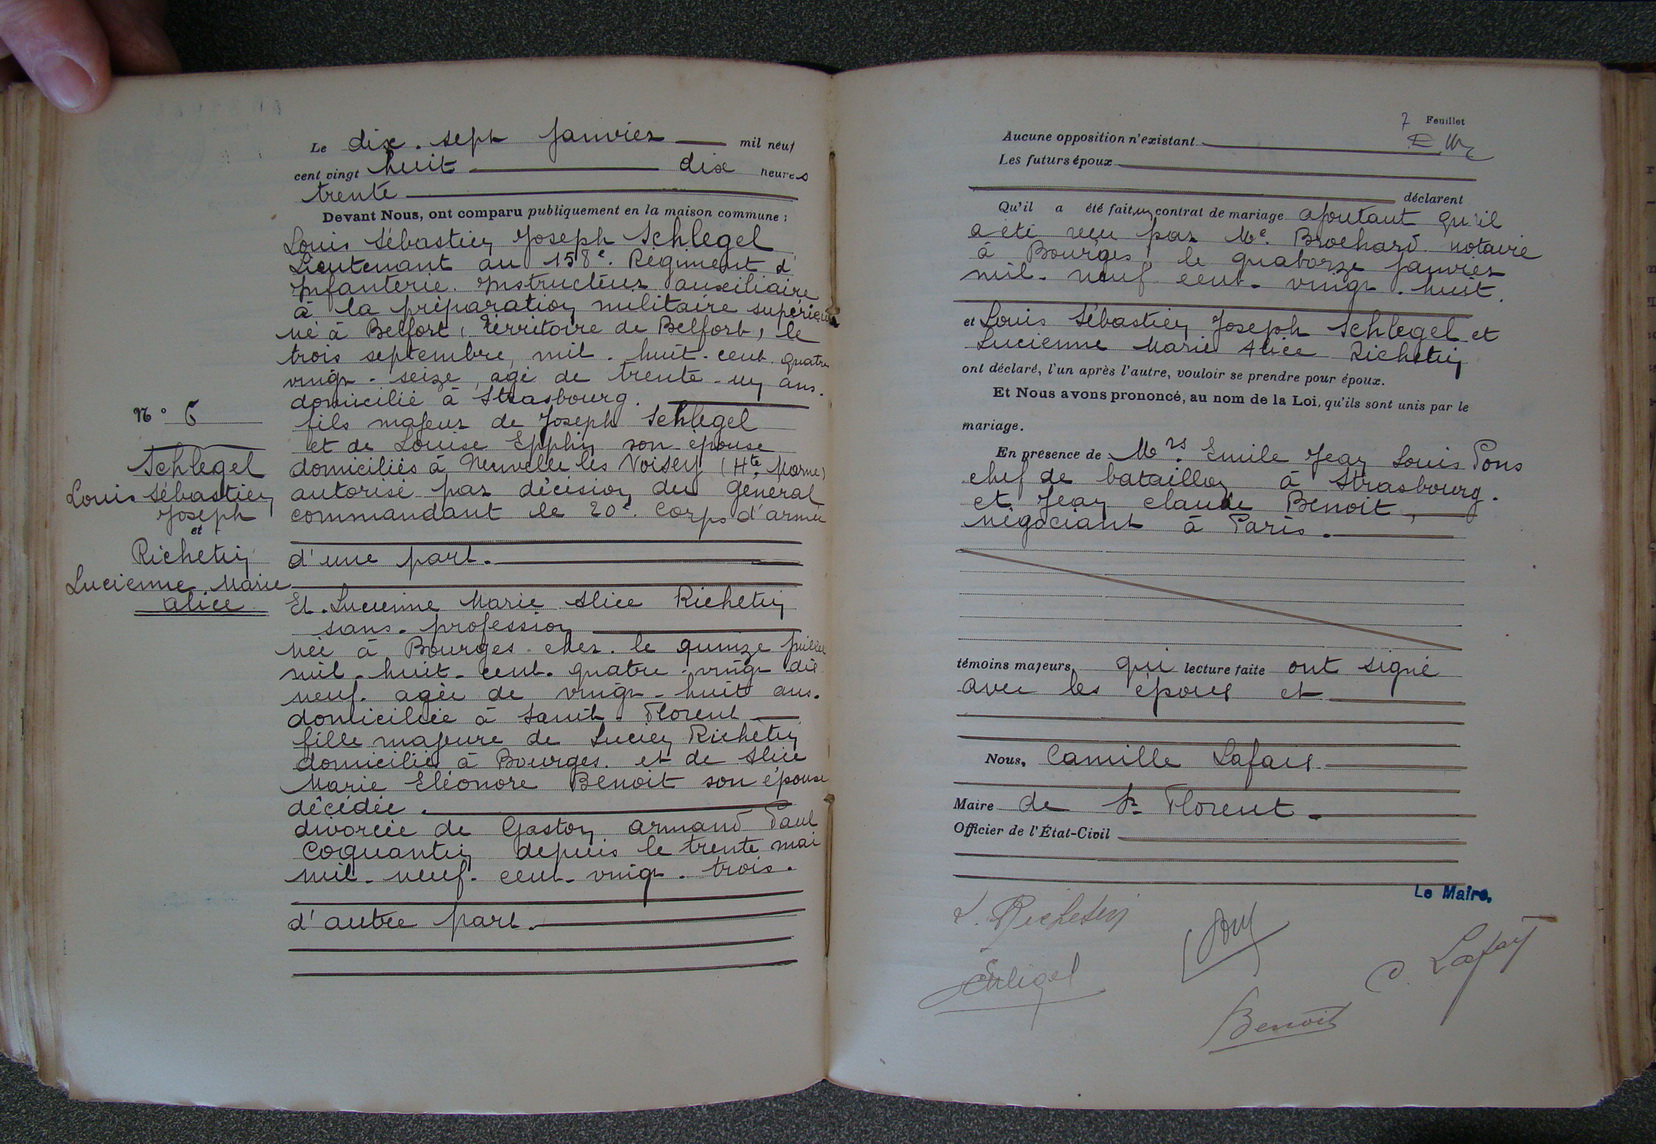 Le dix. sept janvier mil neuf
cent vingt huit dix heures
trente
Devant Nous, ont comparu publiquement en la maison commune :
Louis Sébastien Joseph Schlegel
Lieutenant au 158e. Régiment d'
Infanterie. Instructeur auxiliaire
à la préparation militaire supérieure
né à Belfort, Territoire de Belfort, le
trois septembre, mil. huit. cent. quatre
vingt. seize, agé de trente-un ans.
domicilié à Strasbourg.
fils majeur de Joseph Schlegel
et de Louise Epphin son épouse
domiciliés à Neuvelle les Voisey (Hte Marne)
autorisé par décision du Général
commandant le 20e. Corps d'armée
d'une part.
N° 6
Schlegel
Louis Sébastien
Joseph
et
Richetin
Lucienne Marie
Alice
Et. Lucienne Marie Alice Richetin
sans. profession
née à Bourges. cher. le quinze juillet
mil. huit. cent. quatre. vingt dix
neuf. agée de vingt-huit ans.
domiciliée à Saint-Florent
fille majeure de Lucien Richetin
domicilié à Bourges. et de Alice
Marie Eléonore Benoit son épouse
décédée.
divorcée de Gaston Armand Paul
Coquantin depuis le trente mai
mil. neuf. cent. vingt. trois.
d'autre part.
7 Feuillet
Aucune opposition n'existant
Les futurs époux
déclarent
Qu'il a été fait un contrat de mariage ajoutant qu'il
a été reçu par Me. Brochard notaire
à Bourges, le quatorze janvier
mil. neuf cent. vingt. huit.
et Louis Sébastien Joseph Schlegel et
Lucienne Marie Alice Richetin
ont déclaré, l'un après l'autre, vouloir se prendre pour époux.
Et Nous avons prononcé, au nom de la Loi, qu'ils sont unis par le
mariage.
En présence de Mrs Emile Jean Louis Pons
chef de bataillon à Strasbourg.
et Jean Claude Benoit,
négociant à Paris.
témoins majeurs, qui lecture faite ont signé
avec les époux et
Nous, Camille Lafaix
Maire de St Florent.
Officier de l'État-Civil
Le Maire,
L. Richetin
Schlegel
Benoit
C. Lafaix